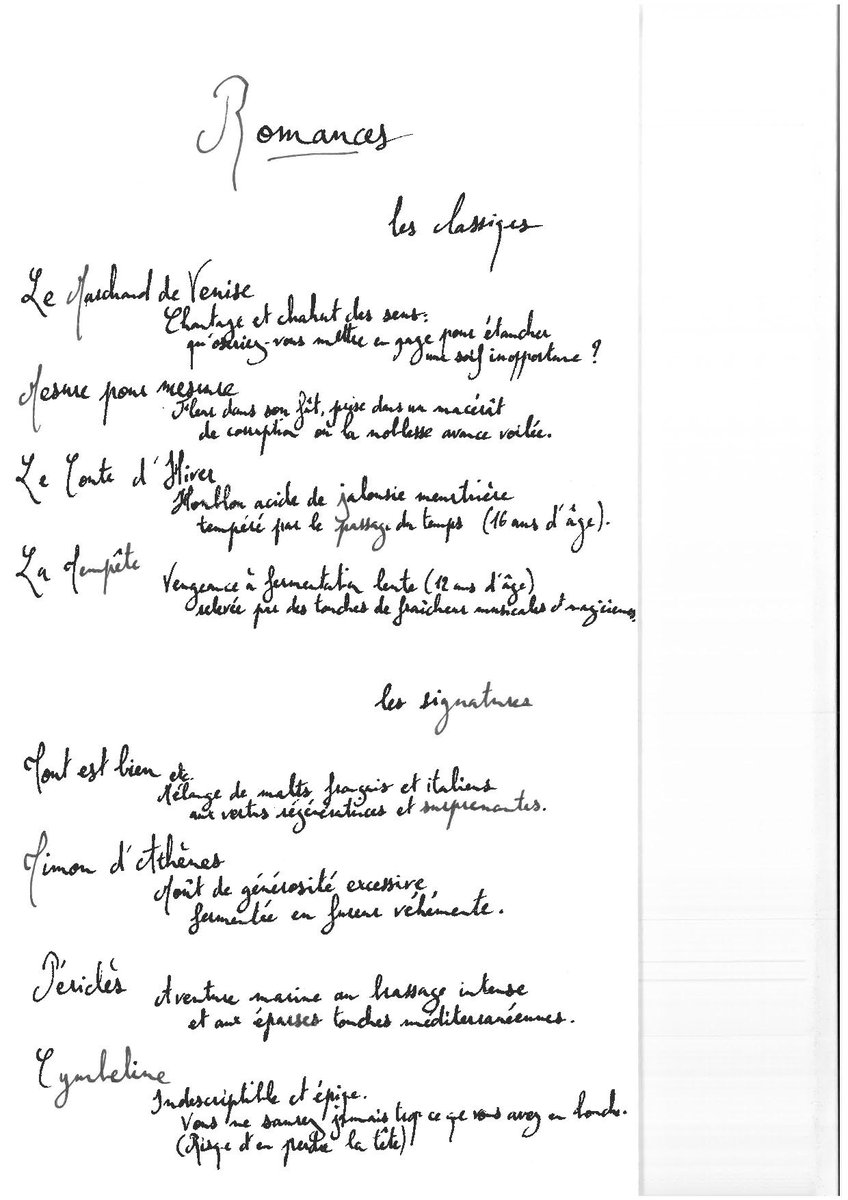 Romances
les classiqes
Le Marchand de Venise
Chantage et chahut des sens :
qu'oseriez-vous mettre en gage pour étancher
une soif inopportune ?
Mesure pour mesure
Fleur dans son fût, prise dans un macérât
de corruption où la noblesse avance voilée.
Le Conte d'Hiver
Houblon acide de jalousie meurtrière
tempéré par le passage du temps (16 ans d'âge).
La Tempête
Vengeance à fermentation lente (12 ans d'âge)
relevée par des touches de fraîcheur musicales et magiciennes.
les signatures
Tout est bien etc.
Mélange de malts français et italiens
aux vertus régénératrices et surprenantes.
Timon d'Athènes
Moût de générosité excessive
fermentée en fureur véhémente.
Périclès
Aventure marine au brassage intense
et aux éparses touches méditerranéennes.
Cymbeline
Indescriptible et épiqe.
Vous ne saurez jamais trop ce qe vous avez en bouche.
(Risqe d'en perdre la tête)